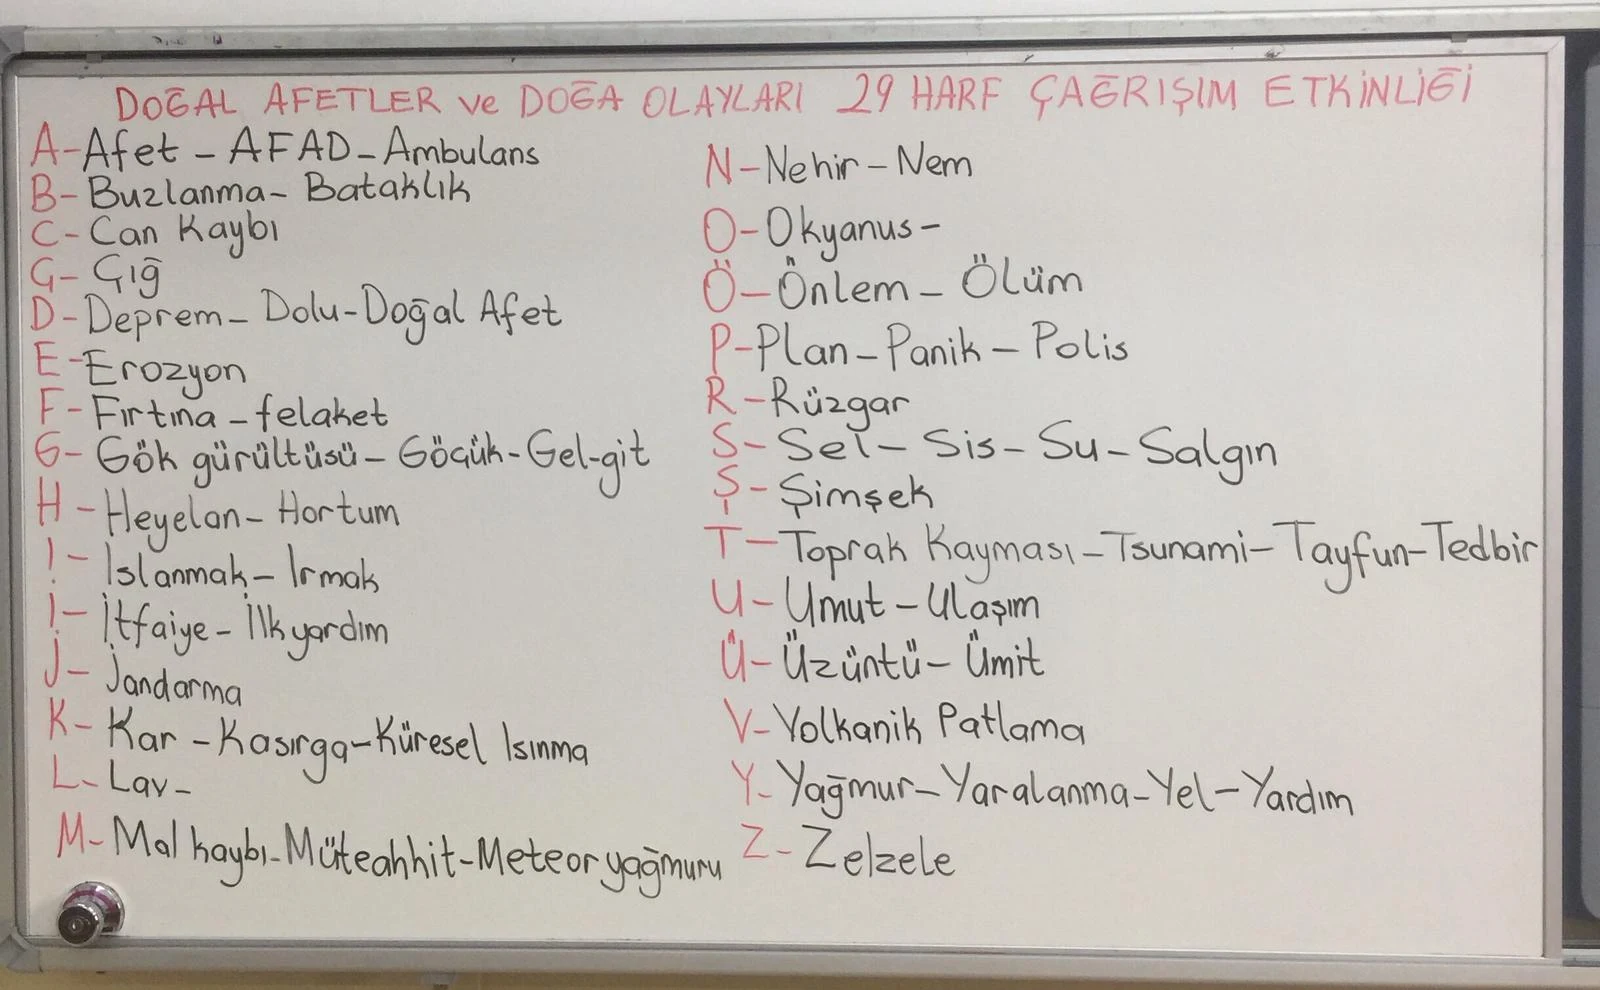 DOĞAL AFETLER ve DOĞA OLAYLARI 29 HARF ÇAĞRIŞIM ETKİNLİĞİ
A-Afet - AFAD - Ambulans
B- Buzlanma - Bataklık
C- Can Kaybı
Ç- Çığ
D- Deprem - Dolu - Doğal Afet
E- Erozyon
F- Fırtına - felaket
G- Gök gürültüsü - Göçük - Gel-git
H- Heyelan - Hortum
I- Islanmak - Irmak
İ- İtfaiye - İlkyardım
J- Jandarma
K- Kar - Kasırga - Küresel Isınma
L- Lav -
M- Mal kaybı - Müteahhit - Meteor yağmuru
N- Nehir - Nem
O- Okyanus -
Ö- Önlem - Ölüm
P- Plan - Panik - Polis
R- Rüzgar
S- Sel - Sis - Su - Salgın
Ş- Şimşek
T- Toprak Kayması - Tsunami - Tayfun - Tedbir
U- Umut - Ulaşım
Ü- Üzüntü - Ümit
V- Volkanik Patlama
Y- Yağmur - Yaralanma - Yel - Yardım
Z- Zelzele